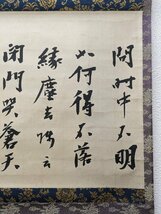 問時中不明
如何得不落
緣塵去師云
閉門哭蒼天